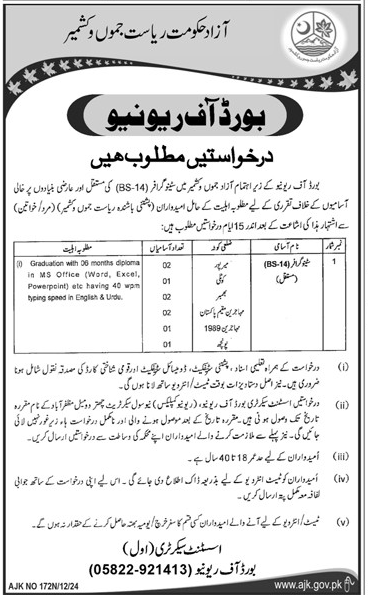 آزاد حکومت ریاست جموں و کشمیر
بورڈ آف ریونیو
درخواستیں مطلوب ہیں
بورڈ آف ریونیو کے زیر اہتمام آزاد جموں وکشمیر میں سٹینوگرافر (BS-14) کی مستقل اور عارضی بنیادوں پر خالی
آسامیوں کے خلاف تقرری کے لیے مطلوبہ اہلیت کے حامل امیدواران (پشتنی باشندہ ریاست جموں وکشمیر) (مرد/خواتین)
سے اشتہار ہذا کی اشاعت کے بعد اندر 15 ایام درخواستیں مطلوب ہیں:
نمبر شمار نام آسامی ضلعی کوٹہ تعداد آسامیاں مطلوبہ اہلیت
1 سٹینوگرافر (BS-14) (مستقل)
میرپور 02
کوٹلی 01
بھمبر 02
مہاجرین مقیم پاکستان 02
مہاجرین 1989 01
پونچھ 01
(i) Graduation with 06 months diploma
in MS Office (Word, Excel,
Powerpoint) etc having 40 wpm
typing speed in English & Urdu.
(i) درخواست کے ہمراہ تعلیمی اسناد، پشتنی سٹیفکیٹ، ڈومیسائل سٹیفکیٹ اور قومی شناختی کارڈ کی مصدقہ نقول شامل ہونا
ضروری ہیں۔ نیز اصل دستاویزات بوقت ٹیسٹ/انٹرویو ساتھ لانا ہوں گی۔
(ii) درخواستیں اسسٹنٹ سیکرٹری بورڈ آف ریونیو، (ریونیو کمپلیکس) نیو سول سیکرٹریٹ چھتر دومیل مظفرآباد کے نام مقررہ
تاریخ تک وصول ہونی ہیں۔ مقررہ تاریخ کے بعد موصول ہونے والی اور نامکمل درخواست ہاء زیر غور نہیں لائی
جائیں گی۔ نیز پہلے سے ملازمت کرنے والے امیدواران اپنے محکمہ کی وساطت سے درخواستیں ارسال کریں۔
(iii) اُمیدواران کے لیے حد عمر 18 تا 40 سال ہے۔
(iv) اُمیدواران کو ٹیسٹ انٹرویو کے لیے بذریعہ ڈاک اطلاع دی جائے گی۔ اس لیے اپنی درخواست کے ساتھ جوابی
لفافہ معہ مکمل پتہ ارسال کریں۔
(v) ٹیسٹ/انٹرویو کے لیے آنے والے امیدواران کسی قسم کا سفر خرچ/یومیہ بھتہ حاصل کرنے کے حقدار نہ ہوں گے۔
اسسٹنٹ سیکرٹری (اول)
بورڈ آف ریونیو (05822-921413)
AJK NO 172N/12/24
www.ajk.gov.pk